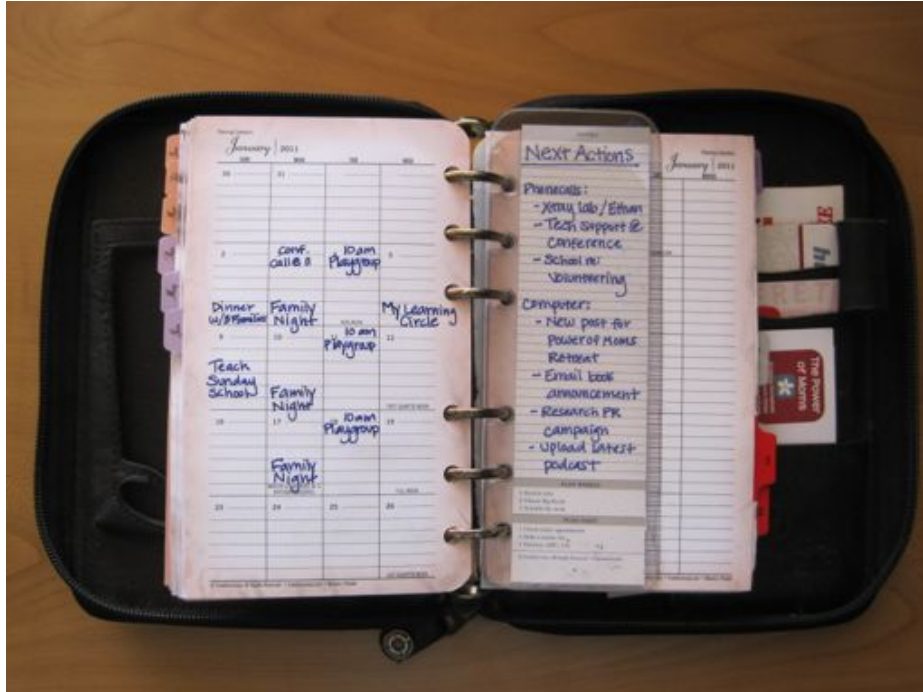 January 2011
SUN MON TUE WED
30 31
2
conf. 10 am
call @ 11 Playgroup 5
Dinner Family My Learning
w/3 Families Night Circle
9 10 10 am 12
Playgroup
Teach
Sunday
School Family
Night
16 17 10 am 19
Playgroup
Family
Night
FULL MOON
23 24 25 26
Next Actions
Phonecalls:
- Xray lab / Ethan
- Tech Support @
Conference
- School re:
Volunteering
Computer:
- New post for
Power of Moms
Retreat
- Email book
announcement
- Research PR
campaign
- Upload latest
podcast
January 2011
The Power
of Moms